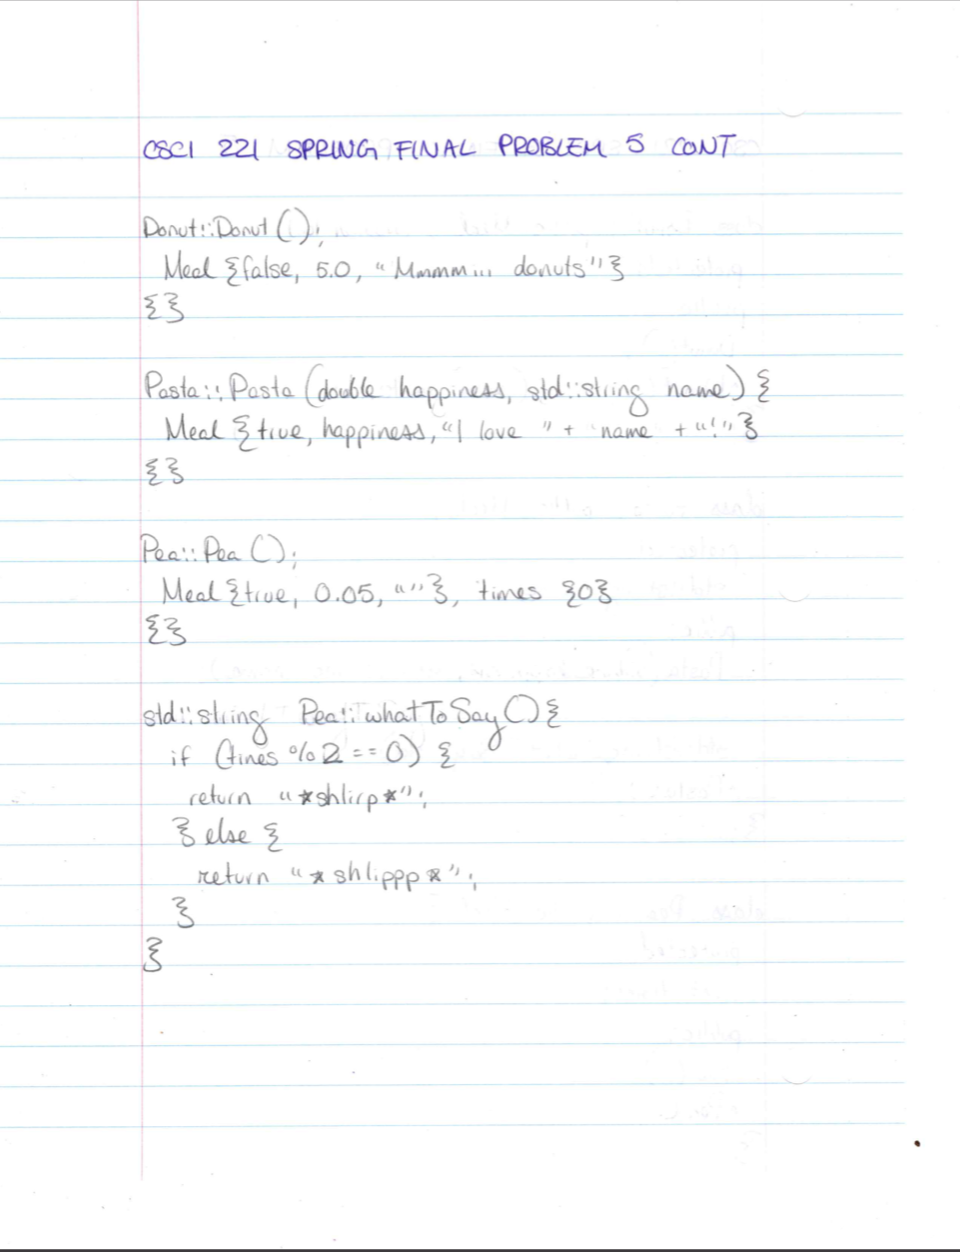 CSCI 221 SPRING FINAL PROBLEM 5 CONT
Donut::Donut();
Meal {false, 5.0, "Mmmm... donuts"}
{}
Pasta::Pasta (double happiness, std::string name) {
Meal {true, happiness, "I love " + name + "!"}
{}
Pea::Pea();
Meal {true, 0.05, ""}, times {0}
{}
std::string Pea::whatToSay() {
if (times % 2 == 0) {
return "*shlirp*";
} else {
return "*shlippp*";
}
}